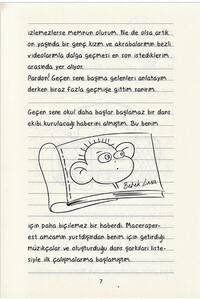 izlemezlerse memnun olurum. Ne de olsa artık
on yaşında bir genç kızım ve akrabalarımın bezli
videolarımla dalga geçmesi en son istediklerim
arasında yer alıyor.
Pardon! Geçen sene başıma gelenleri anlatayım
derken biraz fazla geçmişe gittim sanırım.
Geçen sene okul daha başlar başlamaz bir dans
ekibi kurulacağı haberini almıştım. Bu benim
Bebek Lina
için paha biçilemez bir haberdi. Maceraper-
est amcamın yurtdışından benim için getirdiği
müzikçalar ve oluşturduğu dans şarkıları liste-
siyle ilk çalışmalarıma başlamıştım.
7